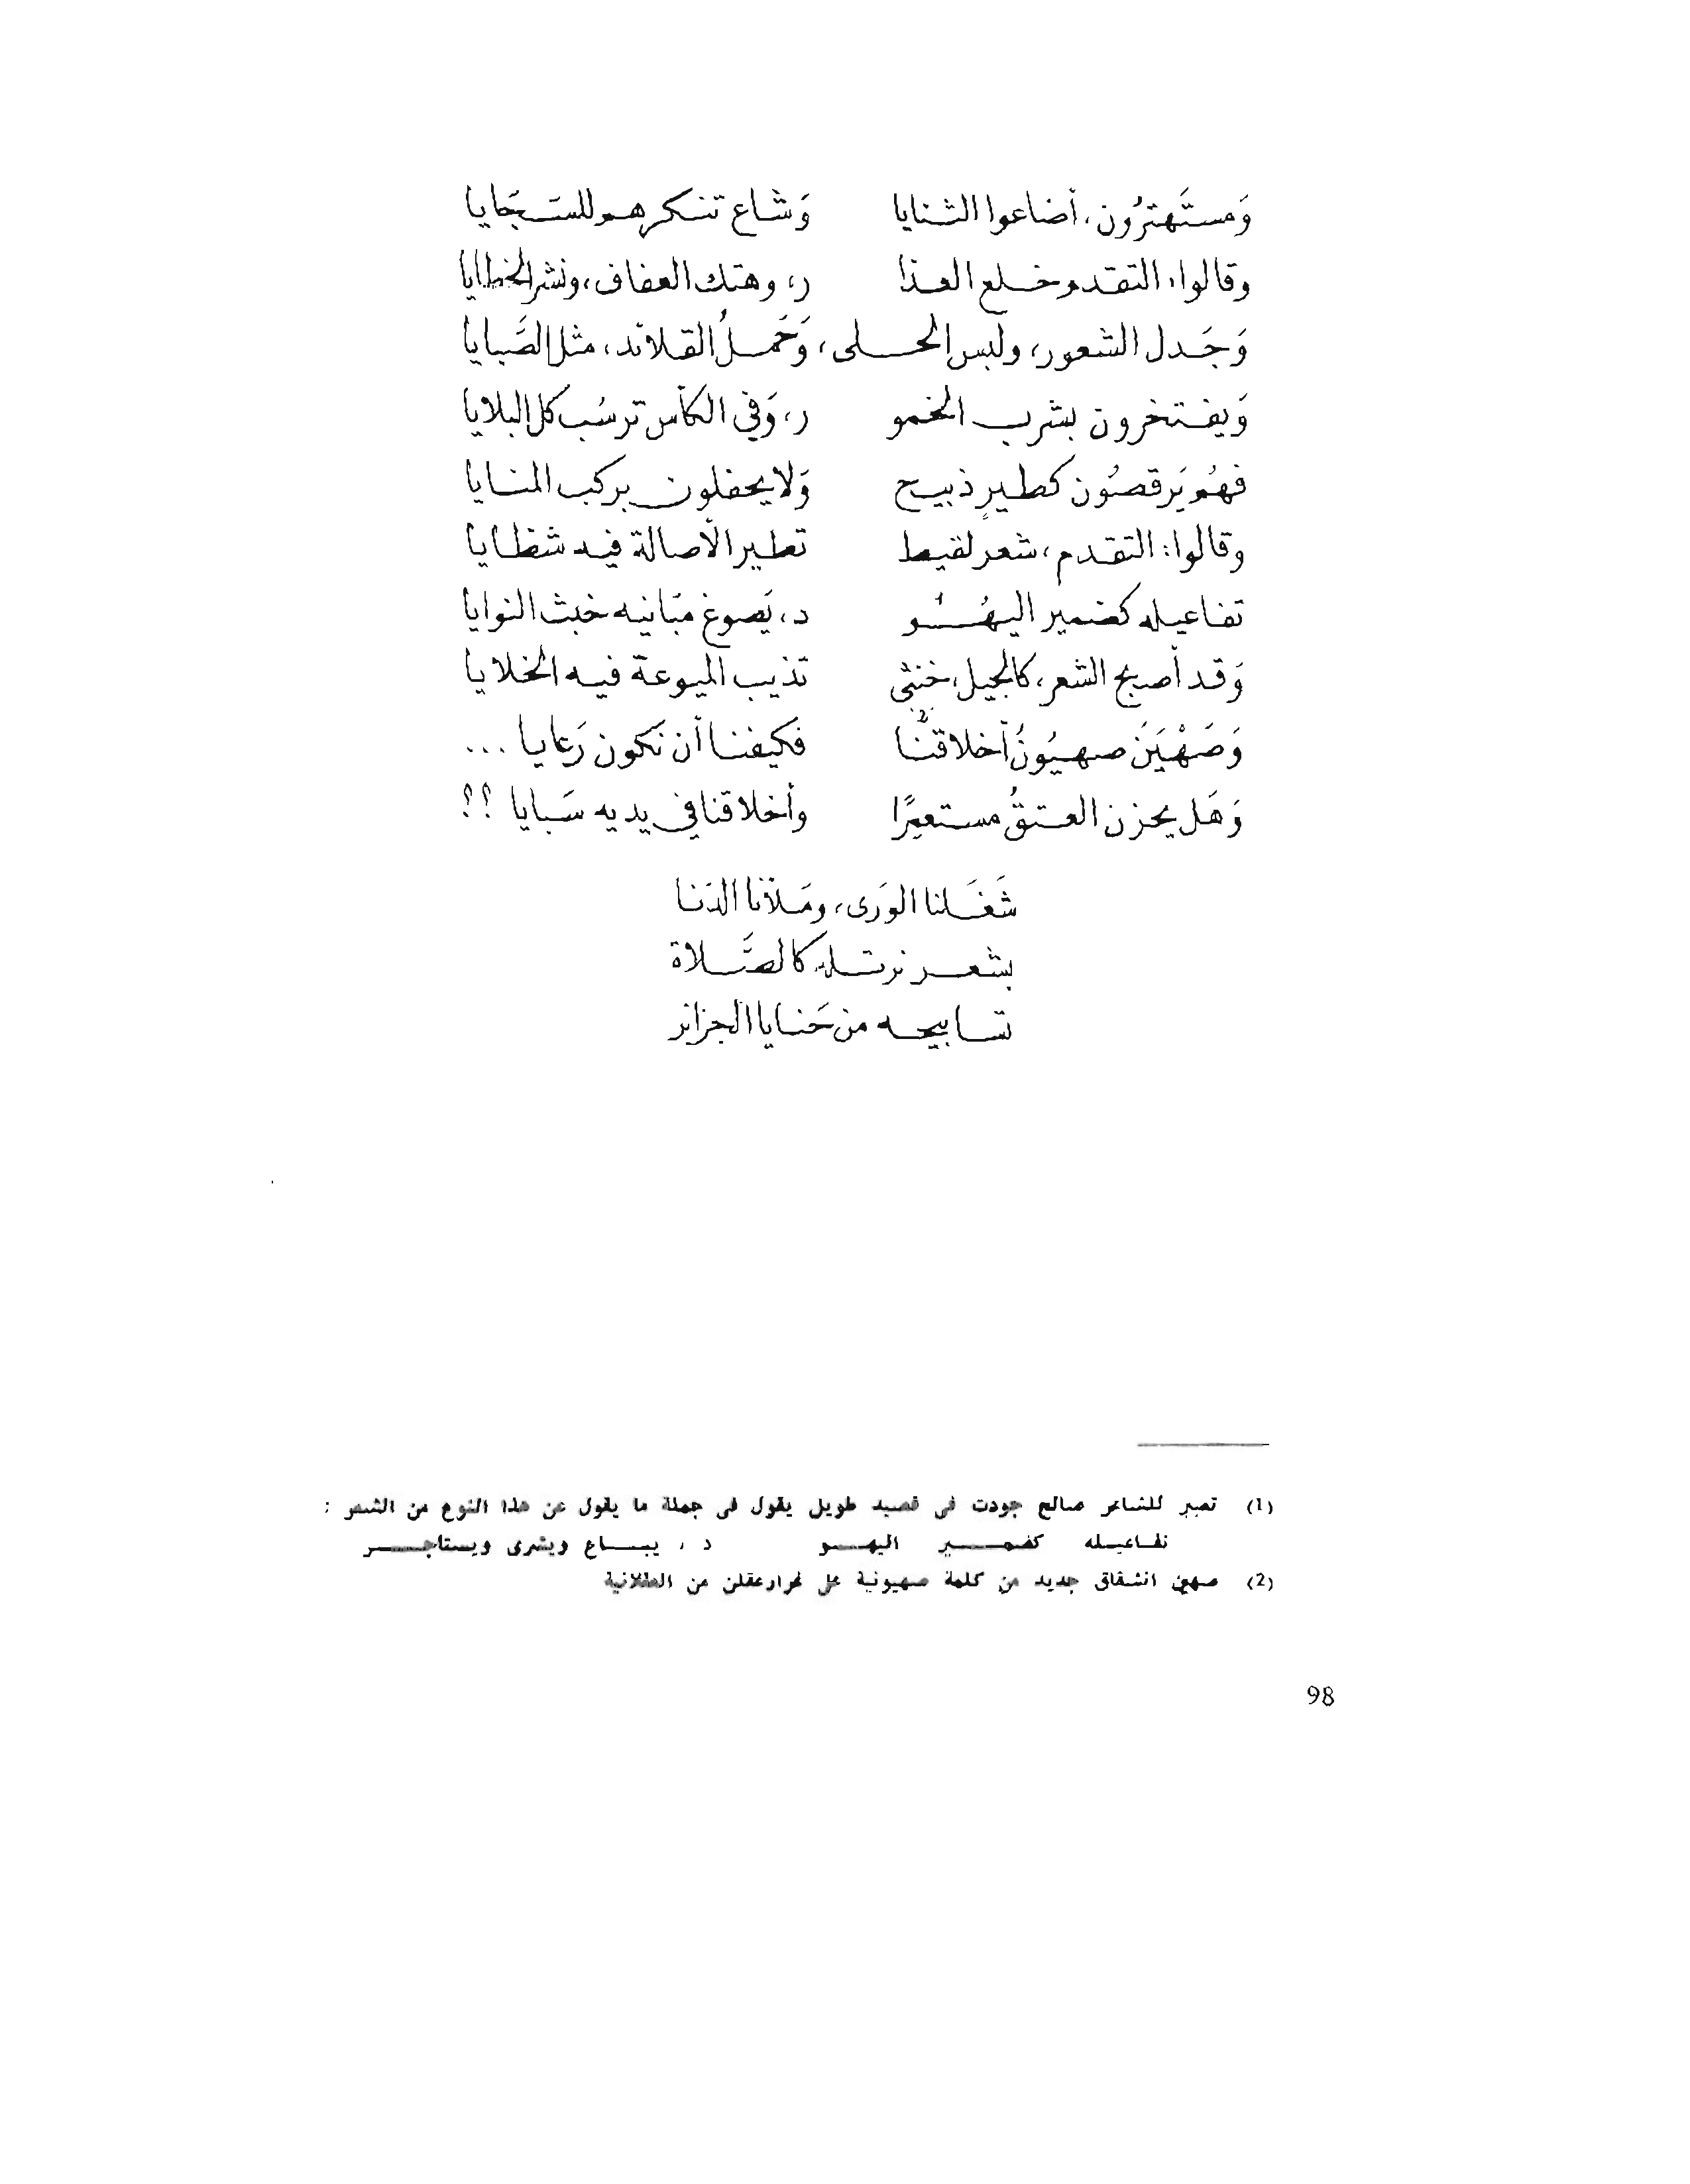 وَمستَهترُون، أضاعوا الثنايا وَشاع تنكرهم للسَجَايا
وقالوا: التقدم خلع العذا ر، وهتك العفاف، ونشر الخطايا
وَجَدل الشعور، ولبس الحلى، وَحَملُ القلائد، مثل الصَّبايا
وَيفتخرون بشرب الخمو ر، وَفي الكأس ترسُب كل البلايا
فهُم يَرقصُون كطيرٍ ذبيح وَلا يحفلون بركب المنايا
وقالوا: التقدم، شعر لقيط تطير الأصالة فيه شظايا
تفاعيله كضمير اليهُو د، يَصوغ مبَانيه خبث النوايا
وَقد أصبح الشعر، كالجيل، خنثى تذيب الميوعة فيه الخلايا
وَصَهْيَنَ صهيُونُ أخلاقنَّا (2) فكيفنا أن نكون رَعايا ...
وَهَل يحزن العتقُ مستعمِرًا وأخلاقنا في يديه سَبايا ؟؟
شَغَلنا الوَرى، ومَلأنا الدنا
بشعر نرتله كالصَّلاة
تسابيحه من حَنايا الجزائر
(1) تعبير للشاعر صالح جودت في قصيد طويل يقول في جملة ما يقول عن هذا النوع من الشعر :
تفاعيله كضمير اليهو د ، يباع ويشرى ويستأجر
(2) صهين انشقاق جديد من كلمة صهيونية على غرار عقلن من العقلانية
98